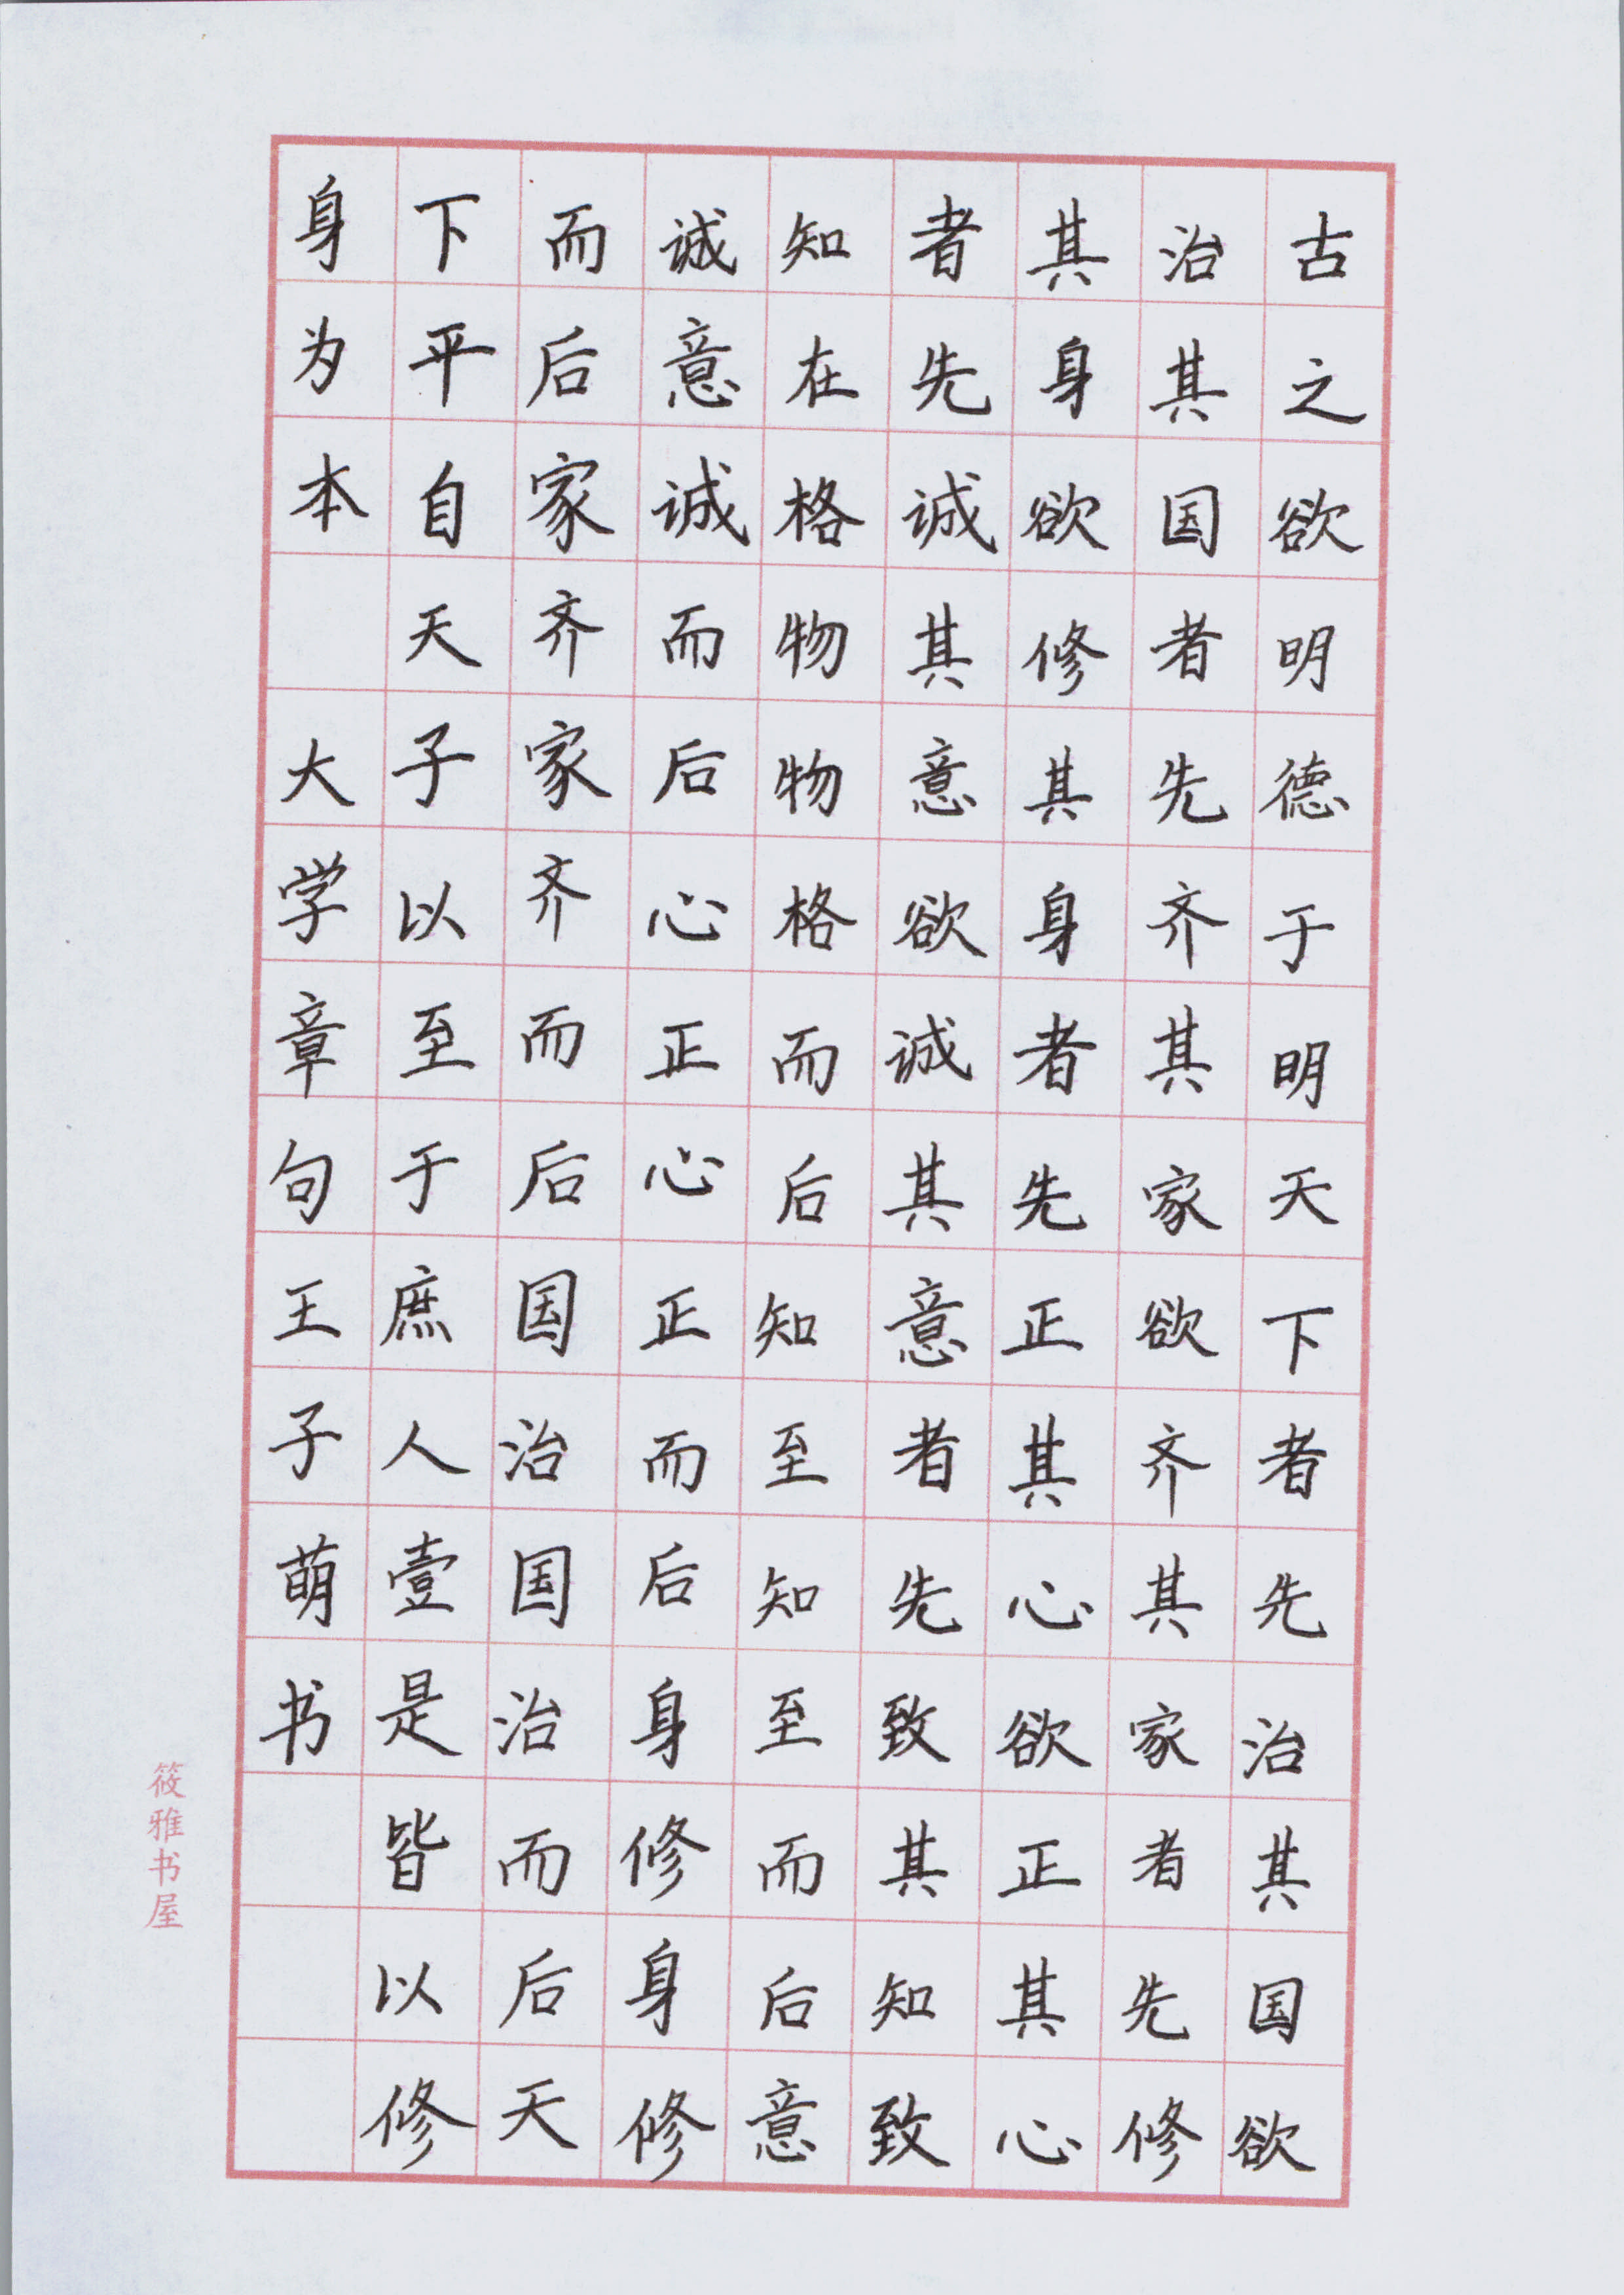 古之欲明德于明天下者先治其国欲
治其国者先齐其家欲齐其家者先修
其身欲修其身者先正其心欲正其心
者先诚其意欲诚其意者先致其知致
知在格物物格而后知至知至而后意
诚意诚而后心正心正而后身修身修
而后家齐家齐而后国治国治而后天
下平自天子以至于庶人壹是皆以修
身为本 大学章句王子萌书
筱雅书屋